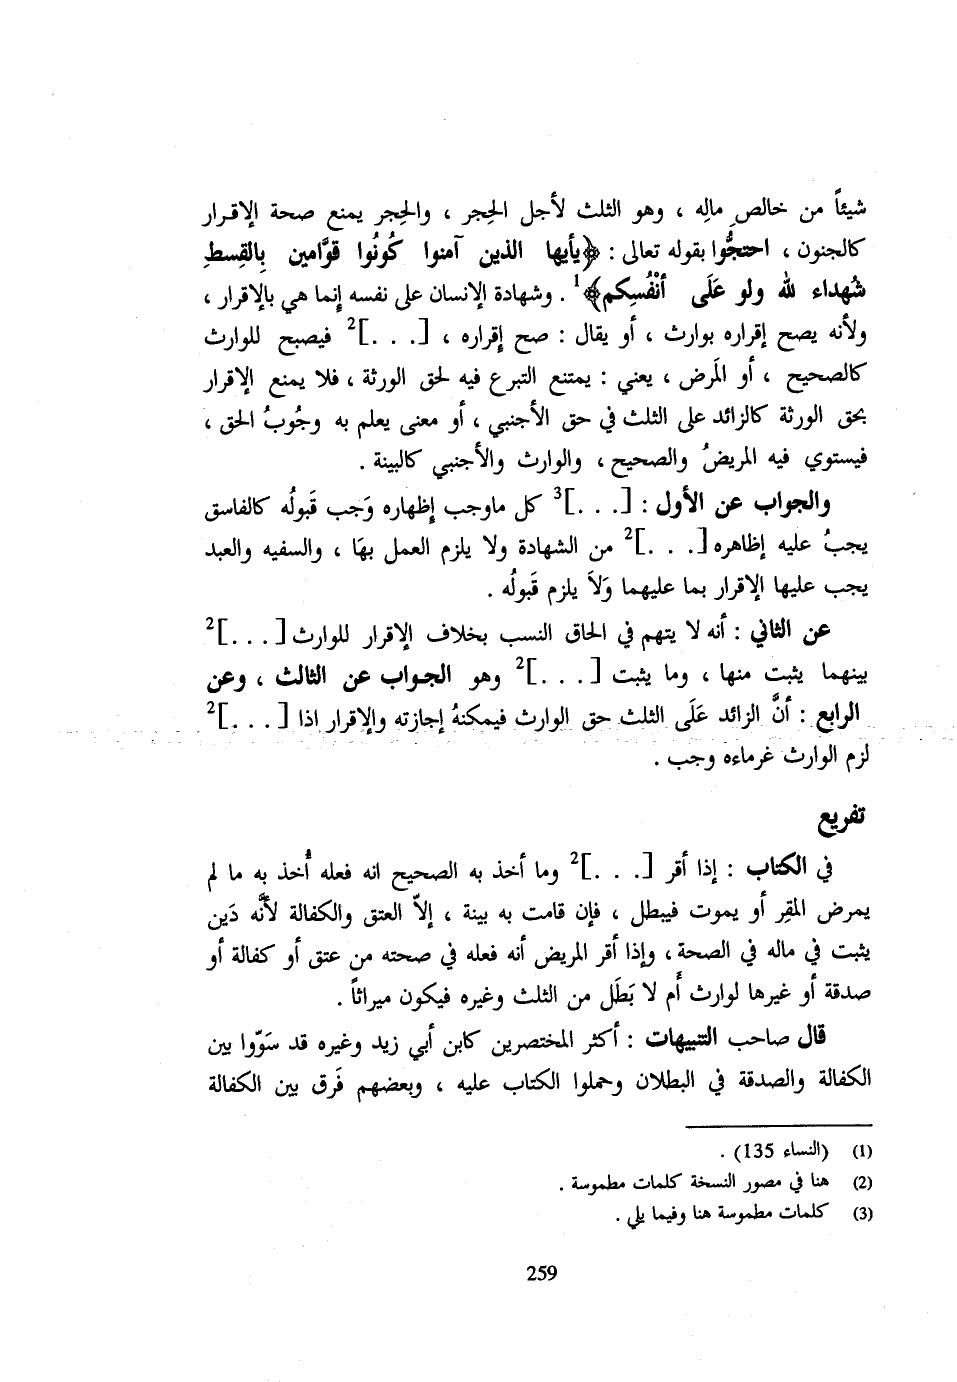 شيئاً من خالصِ مالِه ، وهو الثلث لأجل الحِجر ، والحِجر يمنع صحة الإقرار
كالجنون ، احتجُّوا بقوله تعالى : ﴿يأيها الذين آمنوا كُونُوا قوَّامين بِالقِسطِ
شُهداء لله ولو عَلَى أنْفُسِكم﴾1 . وشهادة الإنسان على نفسه إِنما هي بالإقرار ،
ولأنه يصح إقراره بوارث ، أو يقال : صح إِقراره ، [. . .]2 فيصبح للوارث
كالصحيح ، أو المَرض ، يعني : يمتنع التبرع فيه لحق الورثة ، فلا يمنع الإقرار
بحق الورثة كالزائد على الثلث في حق الأجنبي ، أو معنى يعلم به وجُوبُ الحق ،
فيستوي فيه المريضُ والصحيح ، والوارث والأجنبي كالبينة .
والجواب عن الأول : [. . .]3 كل ماوجب إِظهاره وَجب قَبولُه كالفاسق
يجبُ عليه إظاهره [. . .]2 من الشهادة ولا يلزم العمل بهَا ، والسفيه والعبد
يجب عليها الإقرار بما عليهما وَلاَ يلزم قَبولُه .
عن الثاني : أنه لا يتهم في الحاق النسب بخلاف الإقرار للوارث [. . .]2
بينهما يثبت منها ، وما يثبت [. . .]2 وهو الجواب عن الثالث ، وعن
الرابع : أنَّ الزائد عَلَى الثلث حق الوارث فيمكنهُ إجازته والإقرار اذا [. . .]2
لزم الوارث غرماءه وجب .
تفريع
في الكتاب : إذا أقر [. . .]2 وما أخذ به الصحيح انه فعله أُخذ به ما لم
يمرض المقِر أو يموت فيبطل ، فإن قامت به بينة ، إلاّ العتق والكفالة لأنَّه دَين
يثبت في ماله في الصحة ، وإذا أقر المريض أنه فعله في صحته من عتق أو كفالة أو
صدقة أو غيرها لوارث أم لا بَطَل من الثلث وغيره فيكون ميراثاً .
قال صاحب التنبيهات : أكثر المختصرين كابن أبي زيد وغيره قد سَوّوا بين
الكفالة والصدقة في البطلان وحملوا الكتاب عليه ، وبعضهم فَرق بين الكفالة
(1) (النساء 135) .
(2) هنا في مصور النسخة كلمات مطموسة .
(3) كلمات مطموسة هنا وفيما يلي .
259